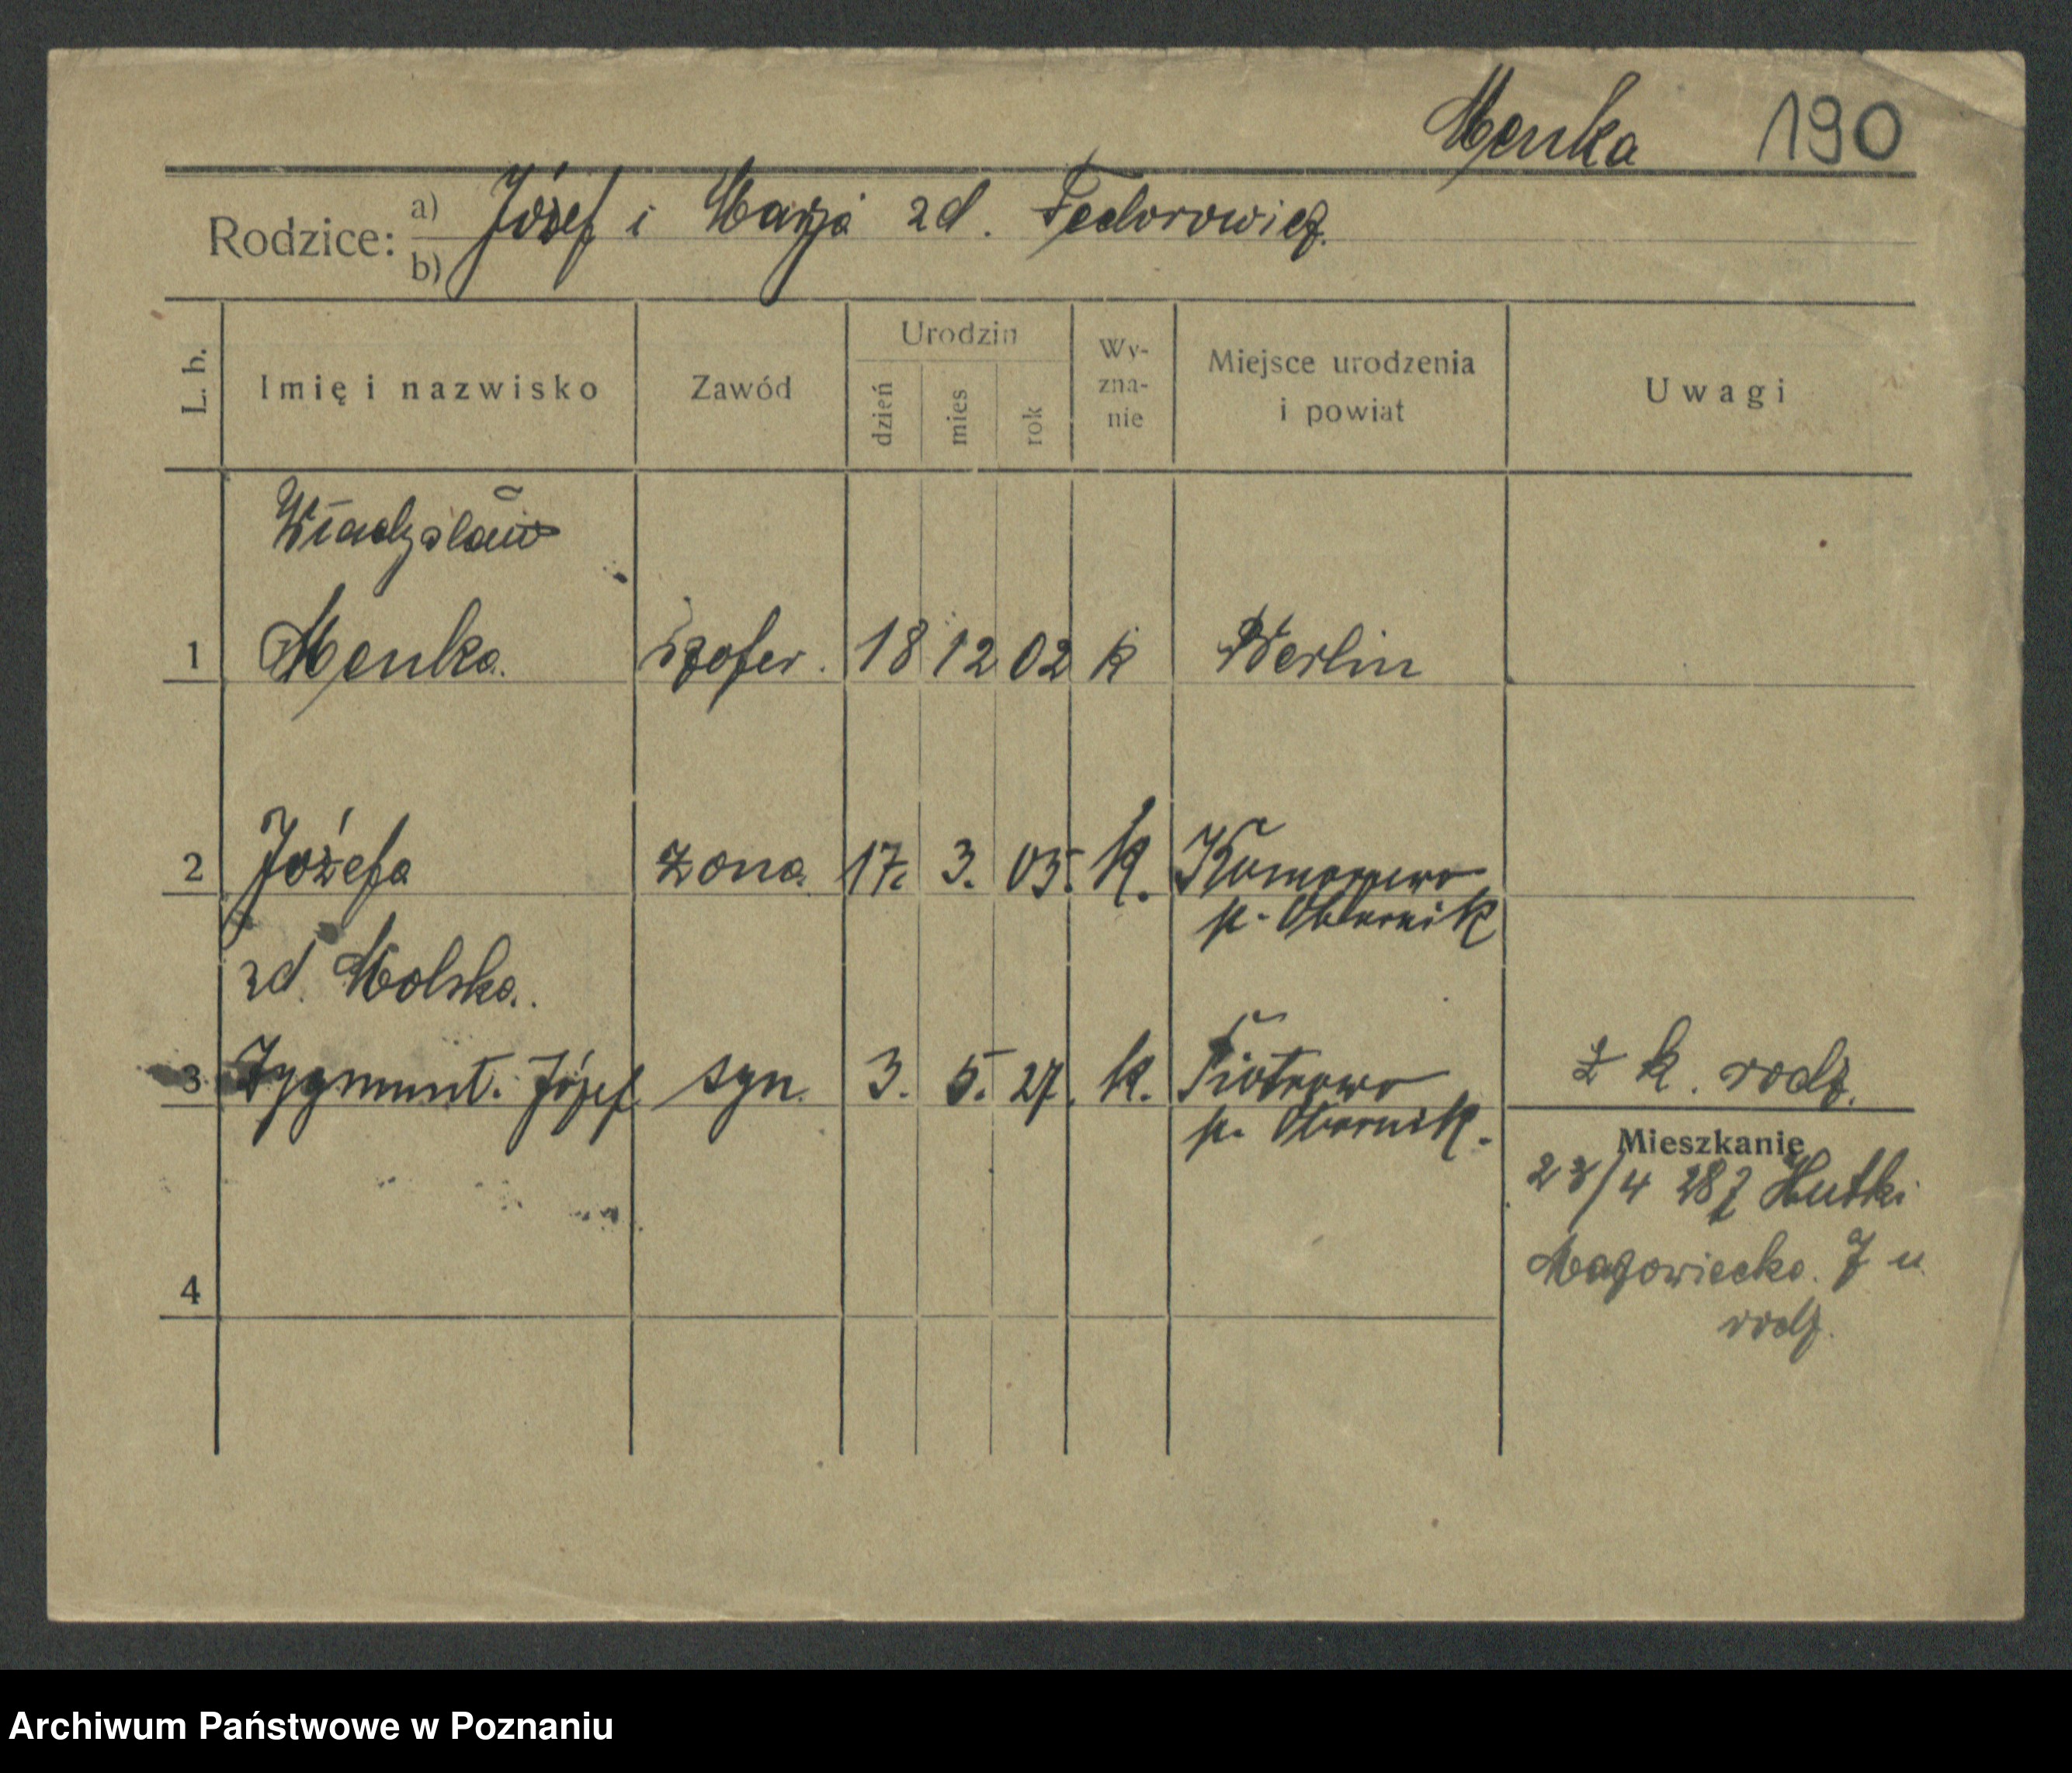 Menka 190
Rodzice: a) Józef i Marja zd. Fedorowicz.
b)
L. b. Imię i nazwisko Zawód Urodzin dzień mies rok Wy-zna-nie Miejsce urodzenia i powiat Uwagi
Władysław
1 Menka. szofer. 18 12 02 k Berlin
2 Józefa żona. 17. 3. 05. k.
p. Obornik
zd. Molska.
3 Zygmunt. Józef syn. 3. 5. 27. k. Piotrowo ż k. rodz.
p. Obornik.
Mieszkanie
23/4 28 z Hutki
Mazowiecka. 7 u
rodz.
4
Archiwum Państwowe w Poznaniu